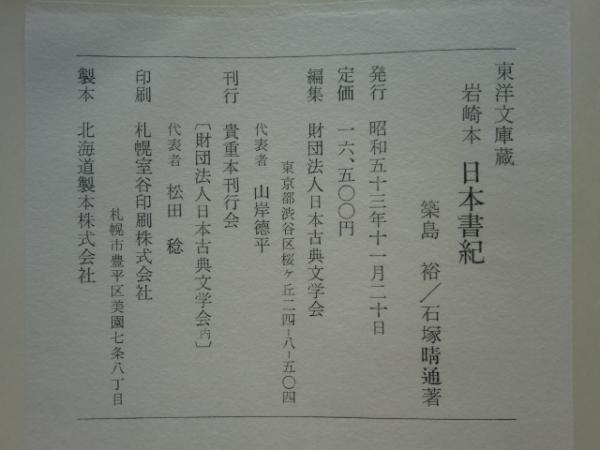 東洋文庫蔵
岩崎本 日本書紀
築島 裕／石塚晴通著
発行 昭和五十三年十一月二十日
定価 一六、五〇〇円
編集 財団法人日本古典文学会
東京都渋谷区桜ヶ丘二四-八-五〇四
代表者 山岸徳平
刊行 貴重本刊行会
〔財団法人日本古典文学会内〕
代表者 松田 稔
印刷 札幌室谷印刷株式会社
札幌市豊平区美園七条八丁目
製本 北海道製本株式会社